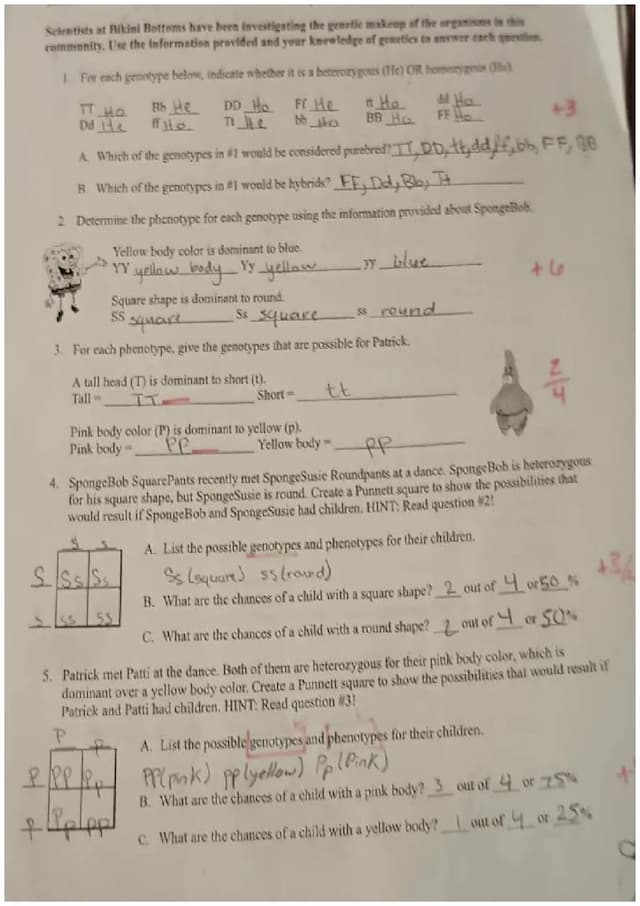 Scientists at Bikini Bottoms have been investigating the genetic makeup of the organisms in this
community. Use the information provided and your knowledge of genetics to answer each question.
1. For each genotype below, indicate whether it is a heterozygous (He) OR homozygous (Ho).
TT Ho Bb He DD Ho Ff He tt Ho dd Ho
Dd He ff Ho Tt He bb Ho BB Ho FF Ho
+3
A. Which of the genotypes in #1 would be considered purebred? TT, DD, tt, dd, ff, bb, FF, BB
B. Which of the genotypes in #1 would be hybrids? FF, Dd, Bb, Tt
2. Determine the phenotype for each genotype using the information provided about SpongeBob.
Yellow body color is dominant to blue.
YY yellow body Yy yellow yy blue
+6
Square shape is dominant to round.
SS square Ss square ss round
3. For each phenotype, give the genotypes that are possible for Patrick.
A tall head (T) is dominant to short (t).
Tall = TT Short = tt
2/4
Pink body color (P) is dominant to yellow (p).
Pink body = PP Yellow body = pp
4. SpongeBob SquarePants recently met SpongeSusie Roundpants at a dance. SpongeBob is heterozygous
for his square shape, but SpongeSusie is round. Create a Punnett square to show the possibilities that
would result if SpongeBob and SpongeSusie had children. HINT: Read question #2!
s s
A. List the possible genotypes and phenotypes for their children.
S Ss Ss
Ss (square) ss (round)
B. What are the chances of a child with a square shape? 2 out of 4 or 50 %
s ss ss
C. What are the chances of a child with a round shape? 2 out of 4 or 50%
5. Patrick met Patti at the dance. Both of them are heterozygous for their pink body color, which is
dominant over a yellow body color. Create a Punnett square to show the possibilities that would result if
Patrick and Patti had children. HINT: Read question #3!
P p
A. List the possible genotypes and phenotypes for their children.
P PP Pp
PP (pink) pp (yellow) Pp (Pink)
B. What are the chances of a child with a pink body? 3 out of 4 or 75%
p Pp pp
C. What are the chances of a child with a yellow body? 1 out of 4 or 25%